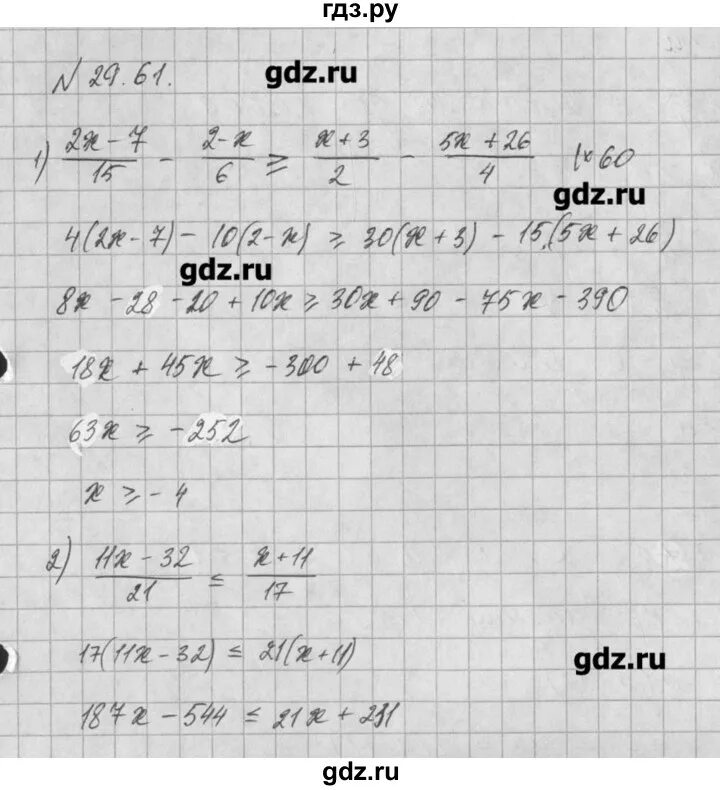 гдз.ру
N 29.61.
gdz.ru
1) (2x - 7)/15 - (2-x)/6 ⩾ (x+3)/2 - (5x+26)/4 | × 60
gdz.ru
4(2x-7) - 10(2-x) ⩾ 30(x+3) - 15(5x+26)
gdz.ru
8x - 28 - 20 + 10x ⩾ 30x + 90 - 75x - 390
18x + 45x ⩾ -300 + 48
63x ⩾ -252
x ⩾ -4
2) (11x - 32)/21 ≤ (x+11)/17
17(11x-32) ≤ 21(x+11)
gdz.ru
187x - 544 ≤ 21x + 231
gdz.ru